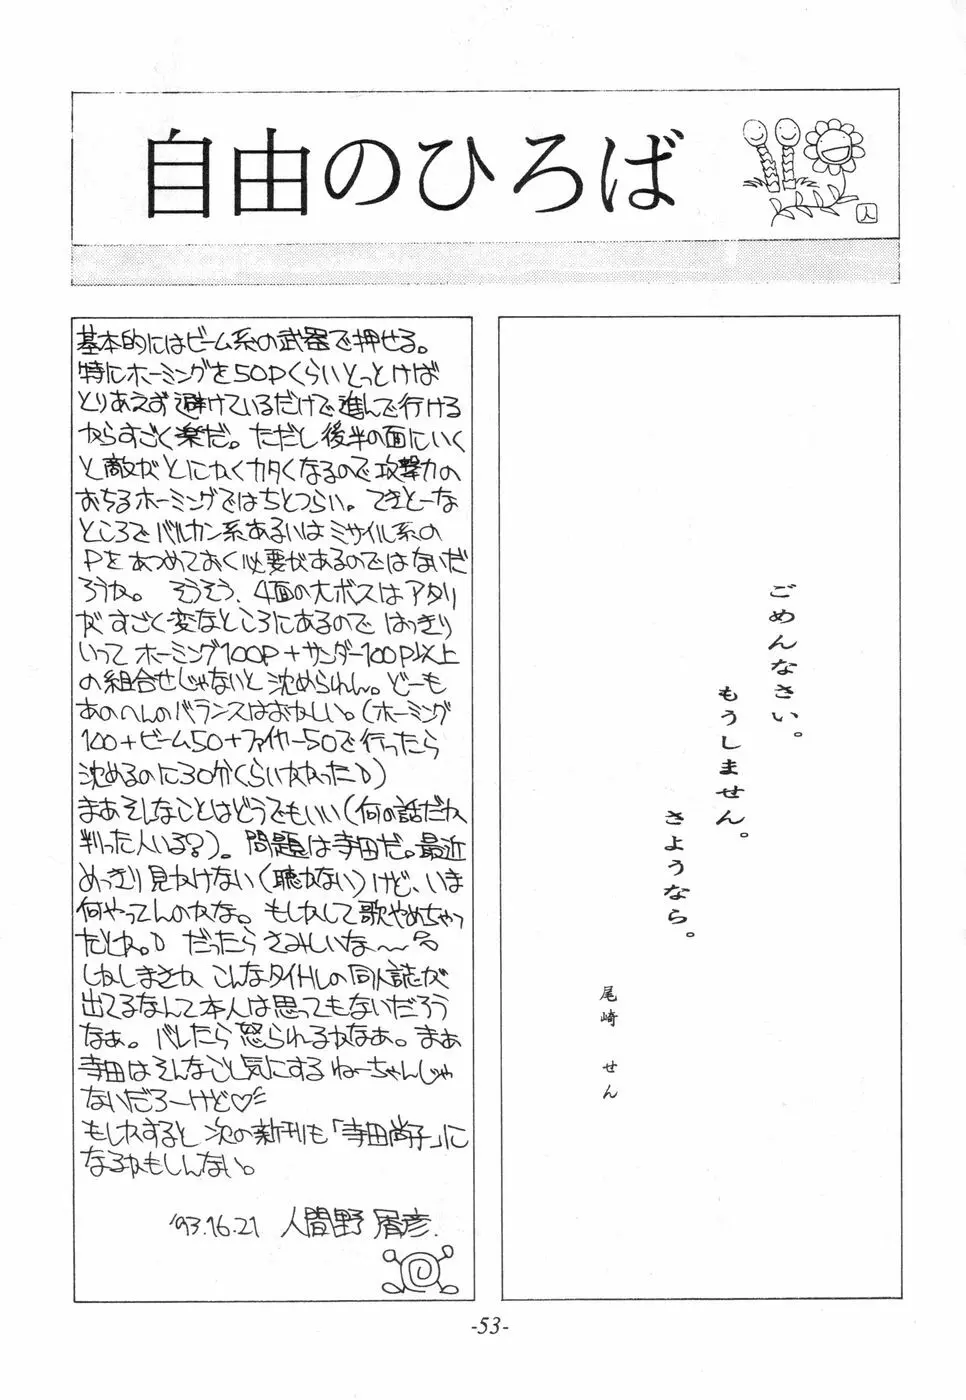 自由のひろば
人
基本的にはビーム系の武器で押せる。
特にホーミングを50Pくらいとっとけば
とりあえず避けているだけで進んで行ける
からすごく楽だ。ただし後半の面にいく
と敵がとにかくカタくなるので攻撃力の
おちるホーミングではちとつらい。てきとーな
ところでバルカン系あるいはミサイル系の
Pをあつめておく必要があるのではないだ
ろうか。そうそう、4面の大ボスはアタリ
がすごく変なところにあるのではっきり
いってホーミング100P+サンダー100P以上
の組合せじゃないと沈められん。どーも
あのへんのバランスはおかしい。(ホーミング
100+ビーム50+ファイヤー50で行ったら
沈めるのに30分くらいかかった)
まあそんなことはどうでもいい(何の話だか
判った人いる?)。問題は寺田だ。最近
めっきり見かけない(聴かない)けど、いま
何やってんのかな。もしかして歌やめちゃっ
たとか。だったらさみしいな〜
しかしまさか こんなタイトルの同人誌が
出てるなんて本人は思ってもないだろう
なぁ。バレたら怒られるかなあ。まぁ
寺田はそんなこと気にするねーちゃんじゃ
ないだろーけど♡
もしかすると次の新刊も「寺田尚子」に
なるかもしんない。
'93.16.21 人間野 屑彦.
ごめんなさい。
もうしません。
さようなら。
尾崎 せん
-53-